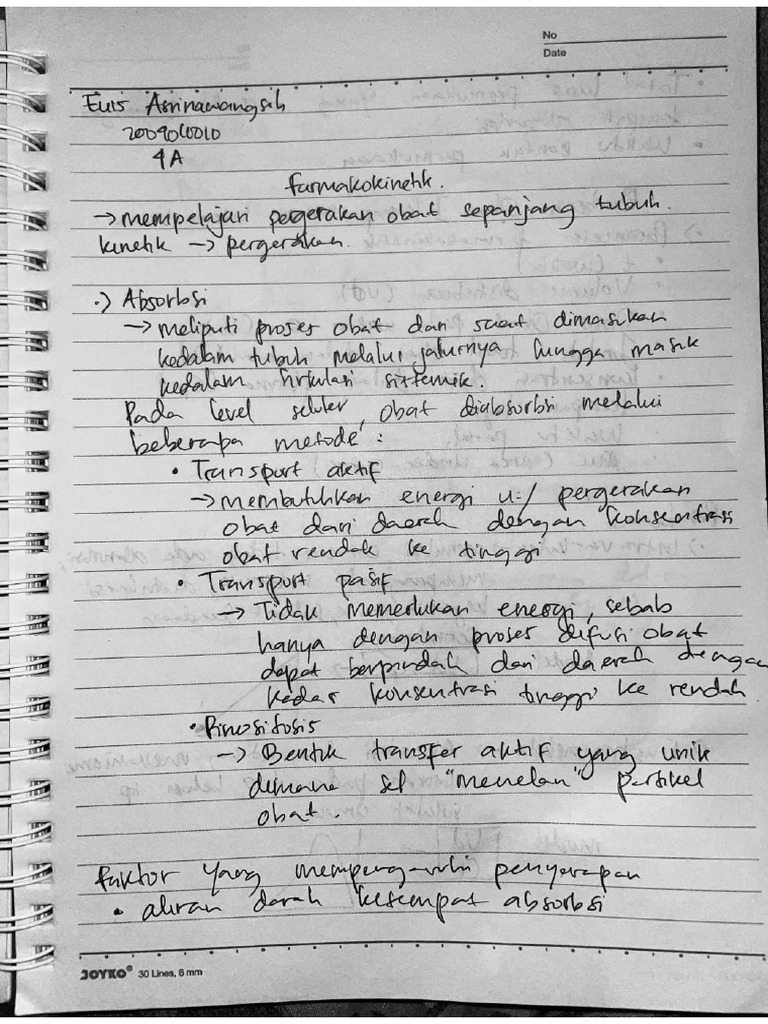 No
Date
Euis Asrinawangsih
2009060010
4A
farmakokinetik.
→ mempelajari pergerakan obat sepanjang tubuh.
kinetik → pergerakan.
•) Absorbsi
→ meliputi proses obat dari saat dimasukan
kedalam tubuh melalui jalurnya hingga masuk
kedalam sirkulasi sistemik.
Pada level seluler, obat diabsorbsi melalui
beberapa metode :
• Transport aktif
→ membutuhkan energi u:/ pergerakan
obat dari daerah dengan konsentrasi
obat rendah ke tinggi
• Transport pasif
→ Tidak memerlukan energi, sebab
hanya dengan proses difusi obat
dapat berpindah dari daerah dengan
kadar konsentrasi tinggi ke rendah.
• Pinositosis
→ Bentuk transfer aktif yang unik
dimana sel "menelan" partikel
obat.
faktor yang mempengaruhi penyerapan
• aliran darah ketempat absorbsi
JOYKO® 30 Lines, 6 mm